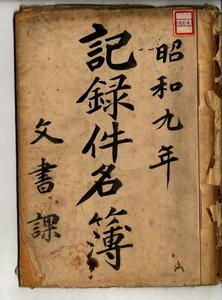 昭和九年
記録件名簿
文書課